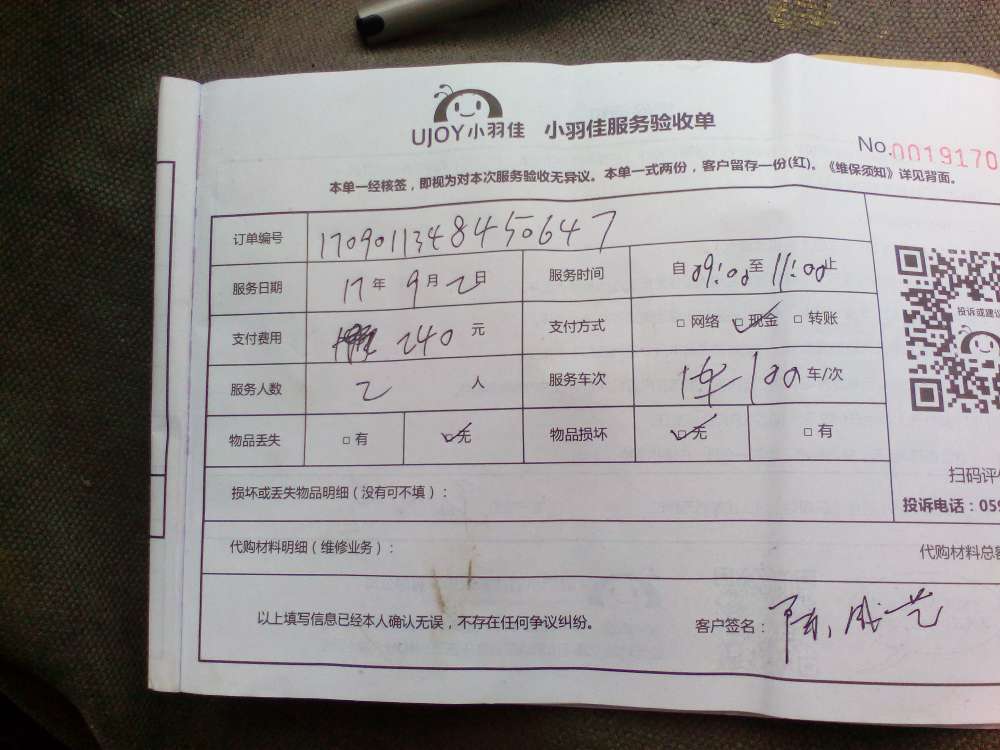 UJOY小羽佳 小羽佳服务验收单
No.0019170
本单一经核签，即视为对本次服务验收无异议。本单一式两份，客户留存一份(红)。《维保须知》详见背面。
订单编号 1709011348450647
服务日期 17年 9月2日 服务时间 自09:00至11:00止
支付费用 240元 支付方式 □网络 ☑现金 □转账
服务人数 2 人 服务车次 100 车/次
物品丢失 □有 ☑无 物品损坏 ☑无 □有
投诉或建议
扫码评
损坏或丢失物品明细（没有可不填）：
投诉电话：059
代购材料明细（维修业务）：
代购材料总
以上填写信息已经本人确认无误，不存在任何争议纠纷。
客户签名：